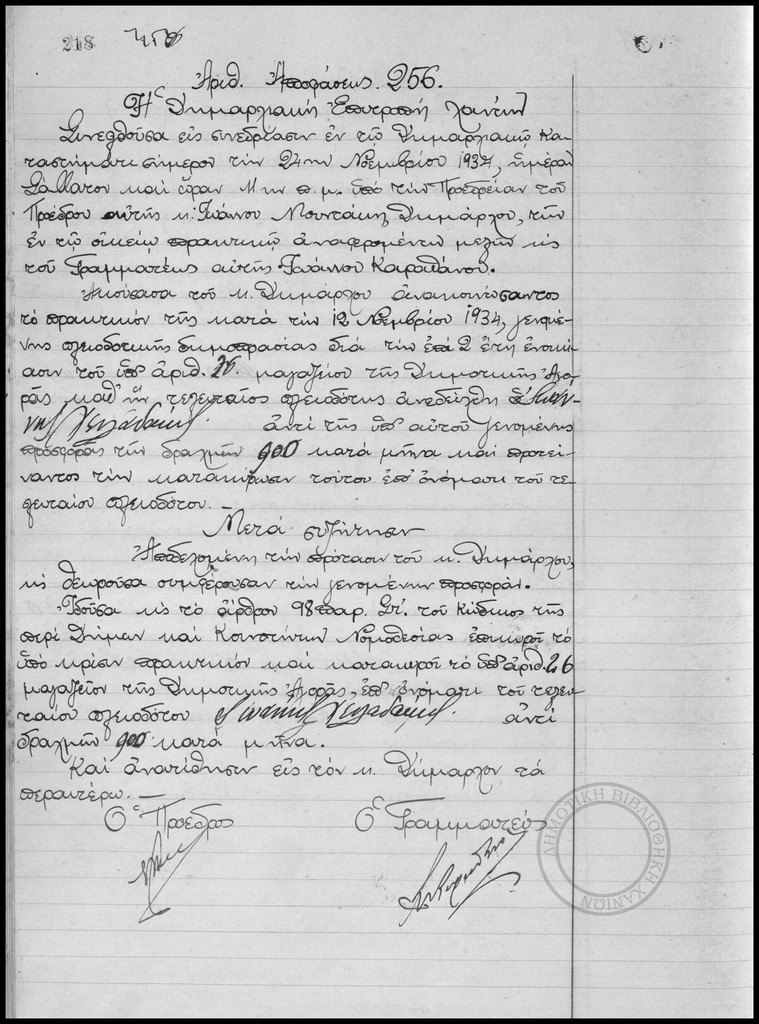 218
Ἀριθ. Ἀποφάσεως. 256.
Ἡ Δημαρχιακή Ἐπιτροπή Χανίων
Συνελθοῦσα εἰς συνεδρίασιν ἐν τῷ Δημαρχιακῷ Κα-
ταστήματι σήμερον τήν 24ην Νοεμβρίου 1934, ἡμέραν
Σάββατον καί ὥραν 11ην π.μ. ὑπό τήν Προεδρείαν τοῦ
Προέδρου αὐτῆς κ. Ἰωάννου Μουντάκη, Δημάρχου, τῶν
ἐν τῷ οἰκείῳ πρακτικῷ ἀναφερομένων μελῶν κις
τοῦ Γραμματέως αὐτῆς Ἰωάννου Καραπάνου.
Ἀκούσασα τοῦ κ. Δημάρχου ἀνακοινώσαντος
τό πρακτικόν τῆς κατά τήν 12 Νοεμβρίου 1934, γενομέ-
νης πλειοδοτικῆς δημοπρασίας διά τήν ἐπί 2 ἔτη ἐνοικί-
ασιν τοῦ ὑπ' ἀριθ. 26. μαγαζείου τῆς Δημοτικῆς Ἀγο-
ρᾶς καθ' ἥν τελευταῖος πλειοδότης ἀνεδείχθη ὁ Ἰωάν-
νης Χειλαδάκης. ἀντί τῆς ὑπ' αὐτοῦ γενομένης
προσφορᾶς τῶν δραχμῶν 900 κατά μῆνα καί προτεί-
ναντος τήν κατακύρωσιν τούτου ἐπ' ὀνόματι τοῦ τε-
λευταίου πλειοδότου. –
Μετά συζήτησιν
Ἀποδεχομένη τήν πρότασιν τοῦ κ. Δημάρχου,
κις θεωροῦσα συμφέρουσαν τήν γενομένην προσφοράν.
Ἰδοῦσα κις τό ἄρθρον 98 παρ. Στ. τοῦ Κώδικος τῆς
περί Δήμων καί Κοινοτήτων Νομοθεσίας ἐπικυροῖ τό
ὑπό κρίσιν πρακτικόν καί κατακυροῖ τό ὑπ' ἀριθ. 26
μαγαζεῖον τῆς Δημοτικῆς Ἀγορᾶς, ἐπ' ὀνόματι τοῦ τελευ-
ταίου πλειοδότου Ἰωάννη Χειλαδάκη. ἀντί
δραχμῶν 900 κατά μῆνα.
Καί ἀνατίθησιν εἰς τόν κ. Δήμαρχον τά
περαιτέρω. –
Ὁ Πρόεδρος Ὁ Γραμματεύς
ΔΗΜΟΤΙΚΗ ΒΙΒΛΙΟΘΗΚΗ ΧΑΝΙΩΝ